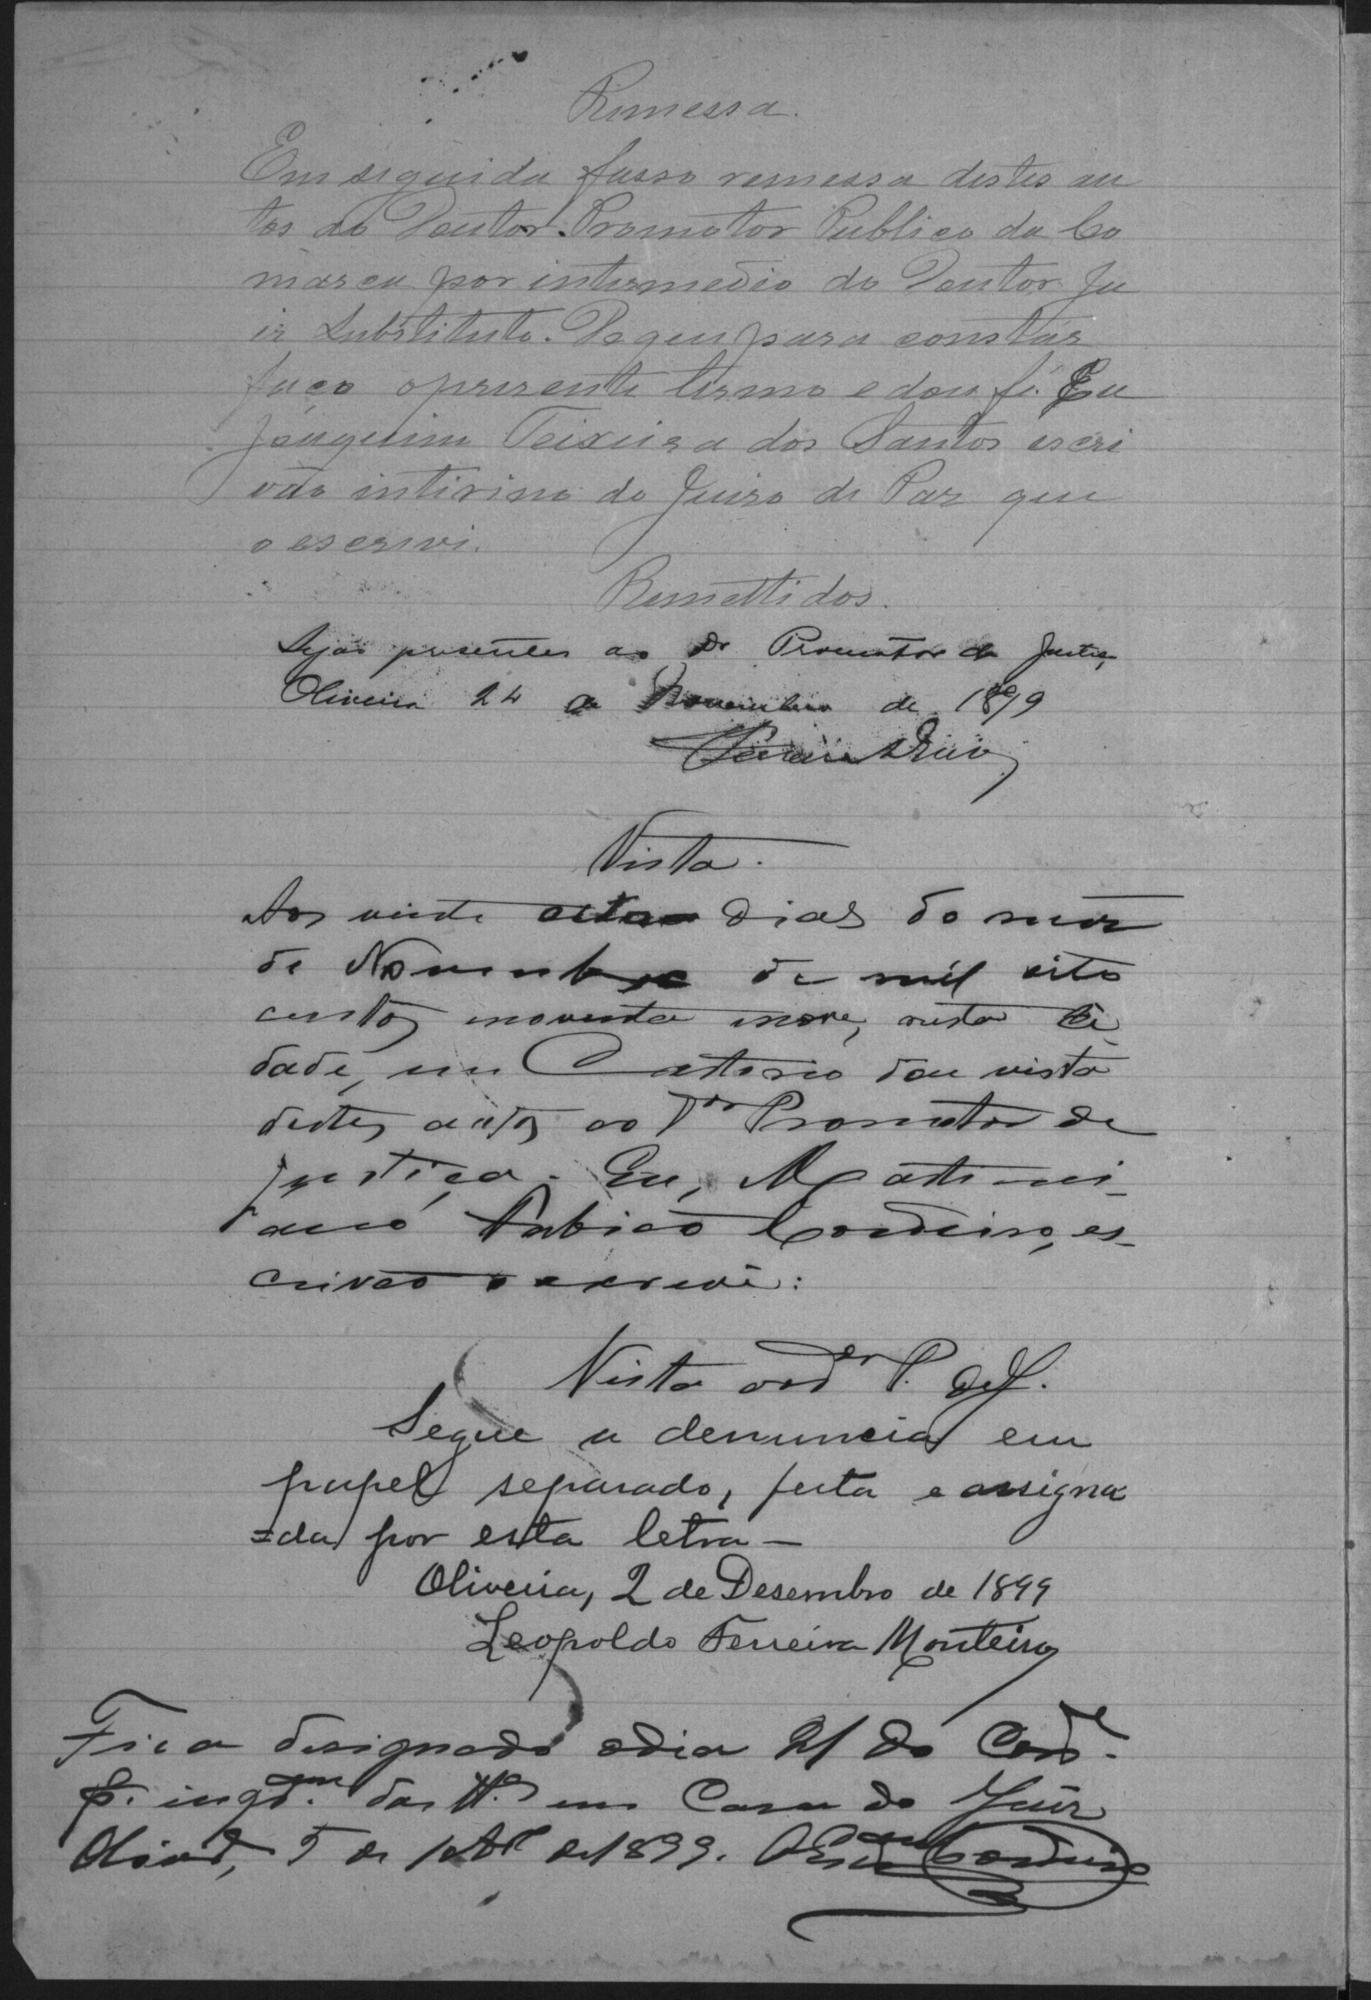 Remessa.
Em seguida fasso remessa destes au
tos ao Doutor Promotor Publico da Co
marca por intermedio do Doutor Ju
iz Substituto. Do que para constar
faço o presente termo e dou fé. Eu
Joaquim Teixeira dos Santos escri
vão intirino do Juizo de Paz que
o escrevi.
Remettidos.
Sejão presentes ao Dr Promotor da Justiça
Oliveira 24 de Novembro de 1899
Vista.
Aos vinte oito dias do mez
de Novembro de mil oito
centos noventa nove, nesta Ci
dade, em Cartorio dou vista
destes autos ao Dor Promotor de
justiça. Eu, Matimi-
ano Fabião Cordeiro, es-
crivão o escrevi:
Vista ao Dr P. de J.
Segue a denuncia em
papel separado, feita e assigna
=da por esta letra—
Oliveira, 2 de Desembro de 1899
Leopoldo Ferreira Monteiro
Fica designado o dia 21 do Corre.
p. inqm. das tt.as em Casa do Juiz
Olivra, 5 de de 1899. O Escram Cordeiro